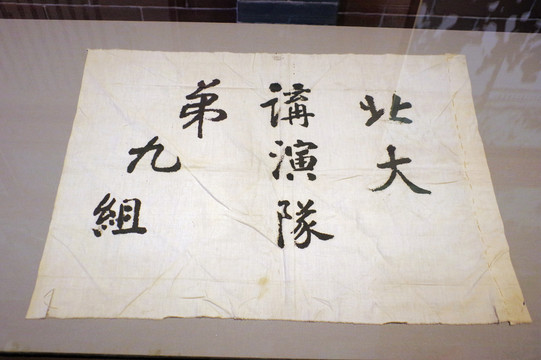 北大
講演隊
第九組